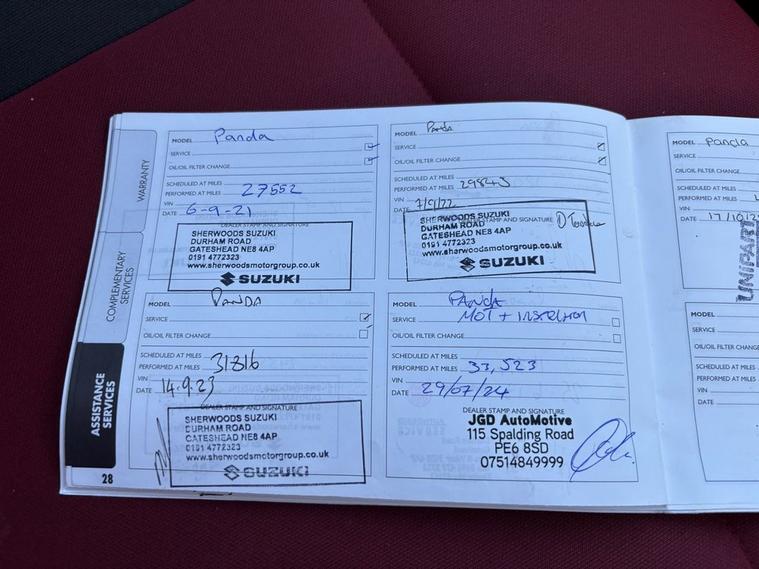 WARRANTY
COMPLEMENTARY
SERVICES
ASSISTANCE
SERVICES
28
MODEL Panda
SERVICE
OIL/OIL FILTER CHANGE
SCHEDULED AT MILES
PERFORMED AT MILES 27552
VIN
DATE 6-9-21
DEALER STAMP AND SIGNATURE
SHERWOODS SUZUKI
DURHAM ROAD
GATESHEAD NE8 4AP
0191 4772323
www.sherwoodsmotorgroup.co.uk
SUZUKI
MODEL Panda
SERVICE
OIL/OIL FILTER CHANGE
SCHEDULED AT MILES
PERFORMED AT MILES
VIN
DATE 7/9/22
DEALER STAMP AND SIGNATURE
SHERWOODS SUZUKI
DURHAM ROAD
GATESHEAD NE8 4AP
0191 4772323
www.sherwoodsmotorgroup.co.uk
SUZUKI
MODEL PANDA
SERVICE
OIL/OIL FILTER CHANGE
SCHEDULED AT MILES
PERFORMED AT MILES 31816
VIN
DATE 14.9.23
DEALER STAMP AND SIGNATURE
SHERWOODS SUZUKI
DURHAM ROAD
GATESHEAD NE8 4AP
0191 4772323
www.sherwoodsmotorgroup.co.uk
SUZUKI
MODEL PANDA
SERVICE MOT + INSPECTION
OIL/OIL FILTER CHANGE
SCHEDULED AT MILES
PERFORMED AT MILES 33,523
VIN
DATE 29/07/24
DEALER STAMP AND SIGNATURE
JGD AutoMotive
115 Spalding Road
PE6 8SD
07514849999
MODEL Panda
SERVICE
OIL/OIL FILTER CHANGE
SCHEDULED AT MILES
PERFORMED AT MILES
VIN
DATE 17/10/2
UNIPART
MODEL
SERVICE
OIL/OIL FILTER CHANGE
SCHEDULED AT MILES
PERFORMED AT MILES
VIN
DATE